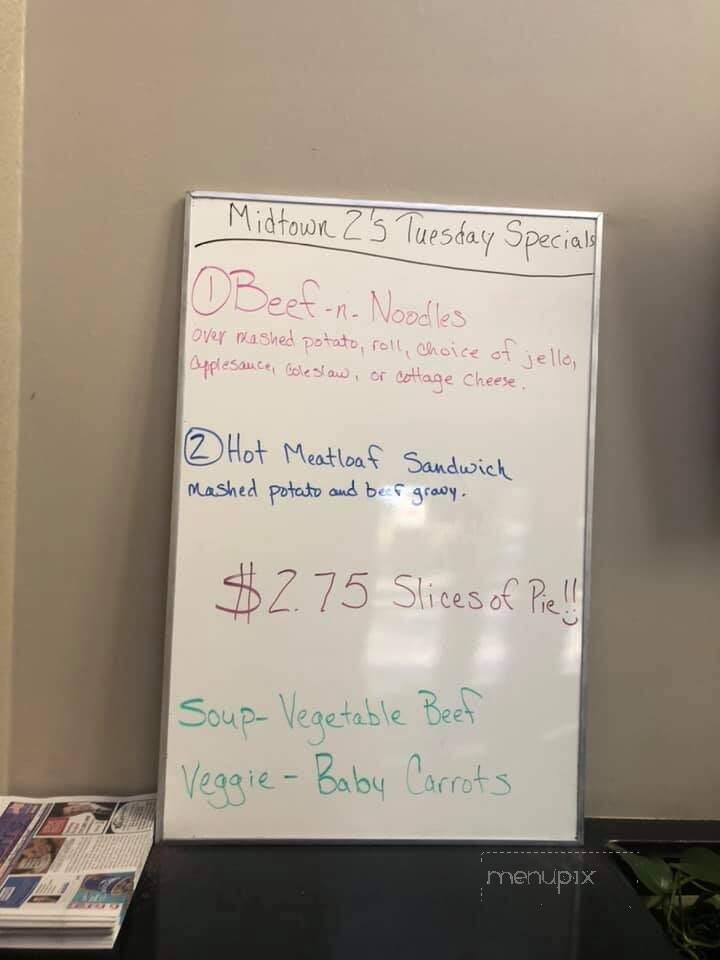 Midtown 2's Tuesday Specials
① Beef-n-Noodles
over mashed potato, roll, choice of jello,
applesauce, coleslaw, or cottage cheese.
② Hot Meatloaf Sandwich
Mashed potato and beef gravy.
$2.75 Slices of Pie!!
Soup- Vegetable Beef
Veggie - Baby Carrots
menupix